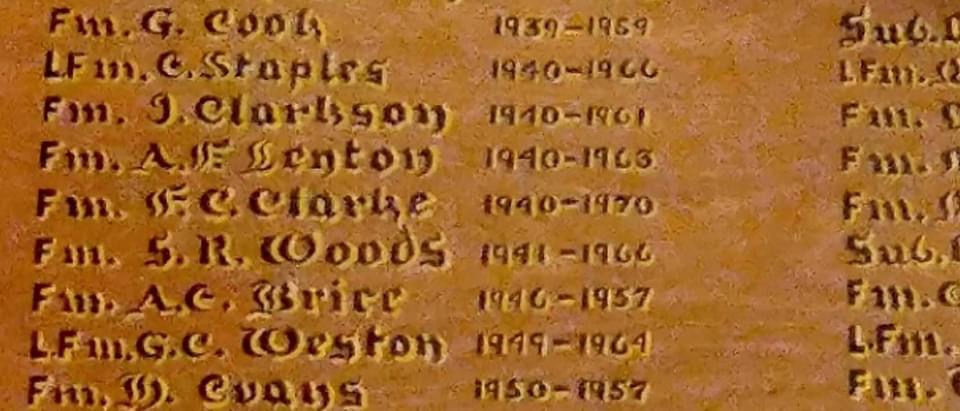 Fm. G. Cook 1939-1959 Sub.
LFm. C. Staples 1940-1966 LFm.
Fm. J. Clarkson 1940-1961 Fm.
Fm. A.F. Lenton 1940-1963 Fm.
Fm. F.C. Clarke 1940-1970 Fm.
Fm. S. R. Woods 1941-1966 Sub.
Fm. A.C. Brice 1946-1957 Fm.
LFm. G.C. Weston 1949-1964 LFm.
Fm. D. Evans 1950-1957 Fm.